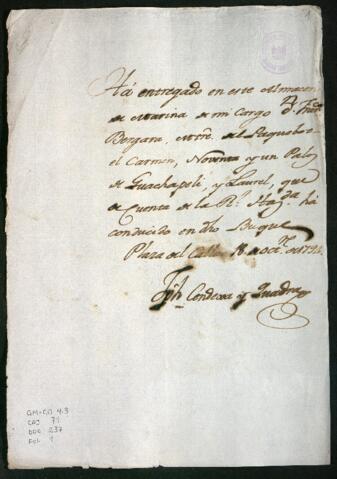 Há entregado en este Almacen
de Marina de mi Cargo Dn. Franco
Bergara, Mtre. del Paquebot
el Carmen, Noventa y un Palos
de Guachapeli, y Laurel, que
de Cuenta de la Rl. Hazda. há
conducido en dho Buque
Plaza del Callao 18 de Octre. de
Jph. Condexa y Quadra
GM-CO 4.3
CAJ 71
DOC 237
FOL 1